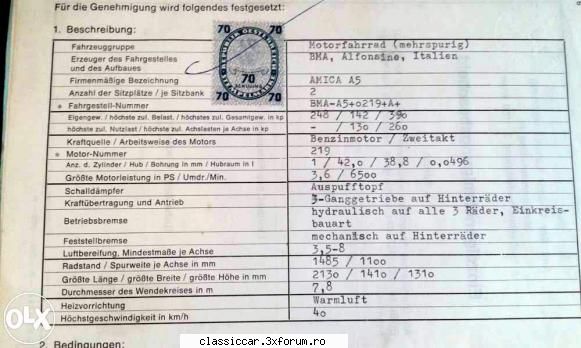 Für die Genehmigung wird folgendes festgesetzt:
1. Beschreibung:
Fahrzeuggruppe Motorfahrrad (mehrspurig)
Erzeuger des Fahrgestelles und des Aufbaues BMA, Alfonsine, Italien
Firmenmäßige Bezeichnung AMICA A5
Anzahl der Sitzplätze / je Sitzbank 2
* Fahrgestell-Nummer BMA-A5+o219+A+
Eigengew. / höchste zul. Belast. / höchstes zul. Gesamtgew. in kp 248 / 142 / 39o
höchste zul. Nutzlast / höchste zul. Achslasten je Achse in kp - / 13o / 26o
Kraftquelle / Arbeitsweise des Motors Benzinmotor / Zweitakt
* Motor-Nummer 219
Anz. d. Zylinder / Hub / Bohrung in mm / Hubraum in l 1 / 42,o / 38,8 / o,o496
Größte Motorleistung in PS / Umdr./Min. 3,6 / 65oo
Schalldämpfer Auspufftopf
Kraftübertragung und Antrieb 3-Ganggetriebe auf Hinterräder
Betriebsbremse hydraulisch auf alle 3 Räder, Einkreis-
bauart
Feststellbremse mechanisch auf Hinterräder
Luftbereifung, Mindestmaße je Achse 3,5-8
Radstand / Spurweite je Achse in mm 1485 / 11oo
Größte Länge / größte Breite / größte Höhe in mm 213o / 141o / 131o
Durchmesser des Wendekreises in m 7,8
Heizvorrichtung Warmluft
Höchstgeschwindigkeit in km/h 4o
2. Bedingungen:
70 70
REPUBLIK ÖSTERREICH
70
SCHILLING
STEMPELMARKE
70 70
OLX
classiccar.3xforum.ro